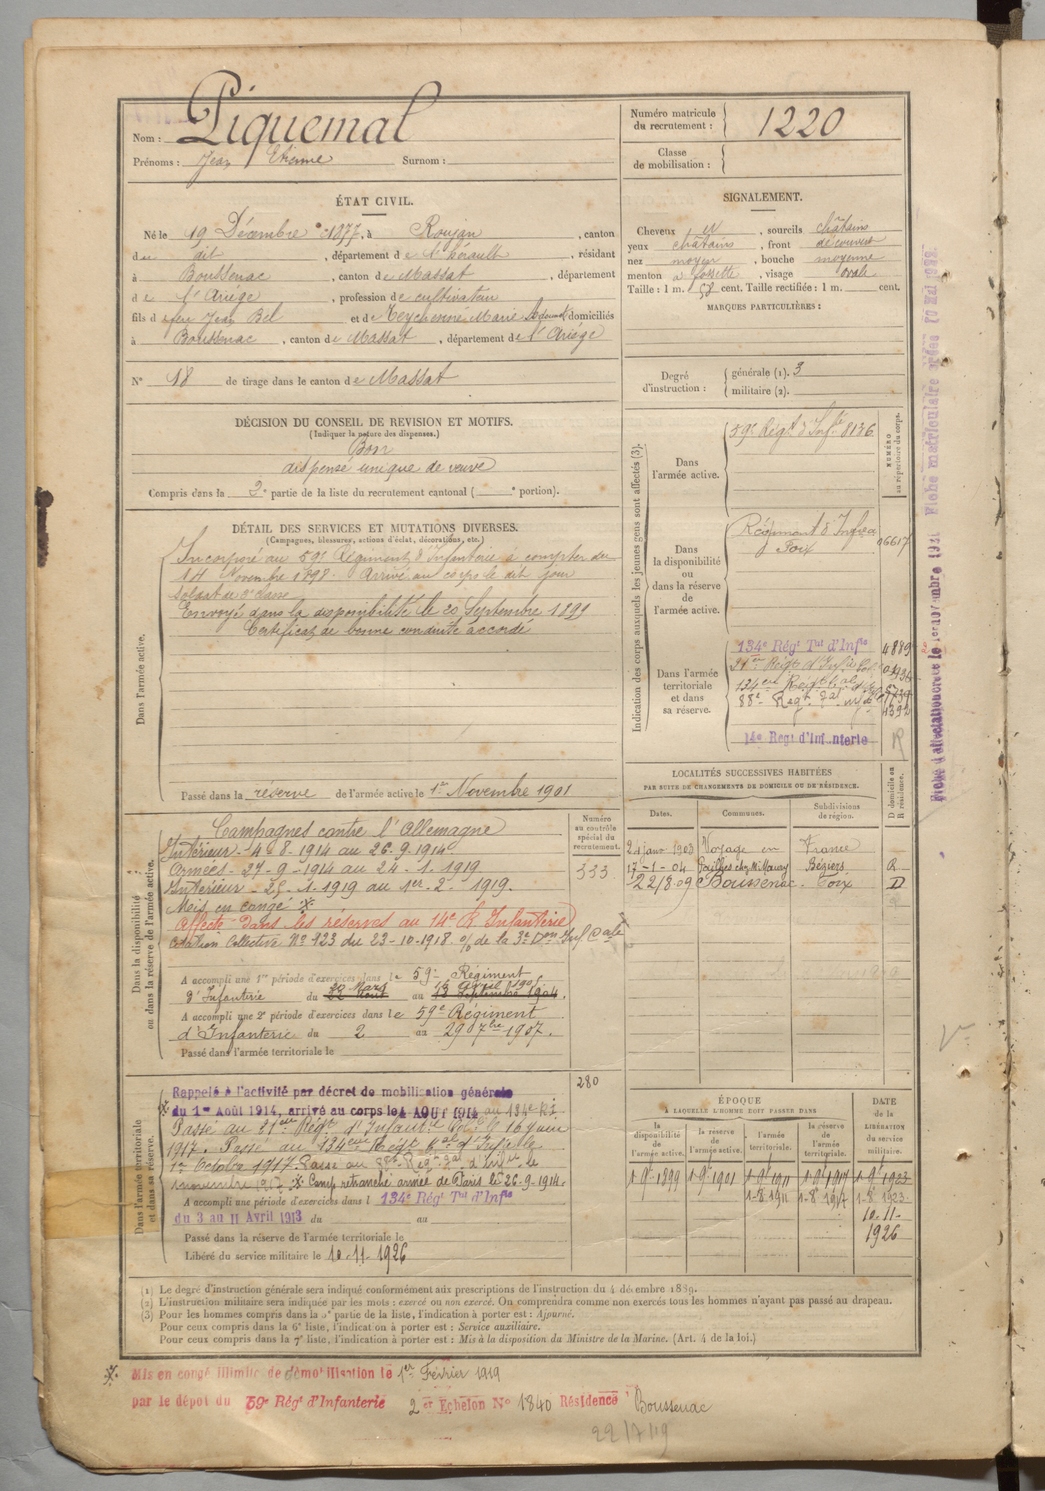 Nom : Piquemal
Prénoms : Jean Etienne Surnom :
Numéro matricule du recrutement : 1220
Classe de mobilisation :
ÉTAT CIVIL.
Né le 19 Décembre 1877, à Roujan, canton
du dit, département de l'hérault, résidant
à Boussenac, canton de Massat, département
de l'Ariège, profession de cultivateur
fils de feu Jean Bel et de Teychenné Marie domiciliés
à Boussenac, canton de Massat, département de l'Ariège
N° 18 de tirage dans le canton de Massat
SIGNALEMENT.
Cheveux id, sourcils châtains
yeux châtains, front découvert
nez moyen, bouche moyenne
menton à fossette, visage ovale
Taille : 1 m. 58 cent. Taille rectifiée : 1 m. cent.
MARQUES PARTICULIÈRES :
Degré d'instruction : générale (1). 3
militaire (2).
DÉCISION DU CONSEIL DE REVISION ET MOTIFS.
(Indiquer la nature des dispenses.)
Bon
dispensé unique de veuve
Compris dans la 2e partie de la liste du recrutement cantonal ( e portion).
DÉTAIL DES SERVICES ET MUTATIONS DIVERSES.
(Campagnes, blessures, actions d'éclat, décorations, etc.)
Dans l'armée active.
Incorporé au 59e Régiment d'Infanterie à compter du
14 Novembre 1898. Arrivé au corps le dit jour
Soldat de 2e classe
Envoyé dans la disponibilité le 20 Septembre 1899
Certificat de bonne conduite accordé
Passé dans la réserve de l'armée active le 1er Novembre 1901
Indication des corps auxquels les jeunes gens sont affectés (3).
NUMÉRO au répertoire du corps.
Dans l'armée active.
59e Régt d'Infie 8136
Dans la disponibilité ou dans la réserve de l'armée active.
Régiment d'Infie
Foix
Dans l'armée territoriale et dans sa réserve.
134e Régt Tal d'Infie 4889
14e Régt d'Infanterie
Dans la disponibilité ou dans la réserve de l'armée active.
Numéro au contrôle spécial du recrutement.
333
Campagnes contre l'Allemagne
Intérieur - 4-8-1914 au 26-9-1914
Armées - 27-9-1914 au 24-1-1919
Intérieur - 25-1-1919 au 1er-2-1919.
Mis en congé
Affecté dans les réserves au 14e R. Infanterie
Citation Collective N° 923 du 23-10-1918 % de la 3e Don Inf Cale
A accompli une 1re période d'exercices dans le 59e Régiment
d'Infanterie du 20 Mars au 16 Avril 1905
A accompli une 2e période d'exercices dans le 59e Régiment
d'Infanterie du 2 au 29 7bre 1907.
Passé dans l'armée territoriale le
LOCALITÉS SUCCESSIVES HABITÉES
PAR SUITE DE CHANGEMENTS DE DOMICILE OU DE RÉSIDENCE.
Dates. Communes. Subdivisions de région. D domicile ou R résidence.
24 janv 1903 Voyage en France
17-1-04 Béziers R
22/8 09 Boussenac Foix D
Dans l'armée territoriale et dans sa réserve.
280
Rappelé à l'activité par décret de mobilisation générale
du 1er Août 1914, arrivé au corps le 4 AOUT 1914 au 134e Rt
Passé au 21e Régt d'Infanterie Cole le 16 juin
1917. Passé au 134eme Régt tal d'Infie le
1er Octobre 1917. Passé au 88e Régt tal d'Infie le
novembre 1917. Camp retranché armée de Paris le 26-9-1914.
A accompli une période d'exercices dans l 134e Régt Tal d'Infie
du 3 au 11 Avril 1913 du au
Passé dans la réserve de l'armée territoriale le
Libéré du service militaire le 10-11-1926
ÉPOQUE
À LAQUELLE L'HOMME DOIT PASSER DANS
DATE de la LIBÉRATION du service militaire.
la disponibilité de l'armée active. la réserve de l'armée active. l'armée territoriale. la réserve de l'armée territoriale.
1-9bre 1899 1-9bre 1901 1-9bre 1911 1-9bre 1917 1-9bre 1923
1-8-1911 1-8-1917 1-8-1923
10-11-
1926
(1) Le degré d'instruction générale sera indiqué conformément aux prescriptions de l'instruction du 4 décembre 1889.
(2) L'instruction militaire sera indiquée par les mots : exercé ou non exercé. On comprendra comme non exercés tous les hommes n'ayant pas passé au drapeau.
(3) Pour les hommes compris dans la 5e partie de la liste, l'indication à porter est : Ajourné.
Pour ceux compris dans la 6e liste, l'indication à porter est : Service auxiliaire.
Pour ceux compris dans la 7e liste, l'indication à porter est : Mis à la disposition du Ministre de la Marine. (Art. 4 de la loi.)
Mis en congé illimité de démobilisation le 1er Février 1919
par le dépot du 59e Régt d'Infanterie 2er Echelon N° 1840 Résidence Boussenac
22/7/19